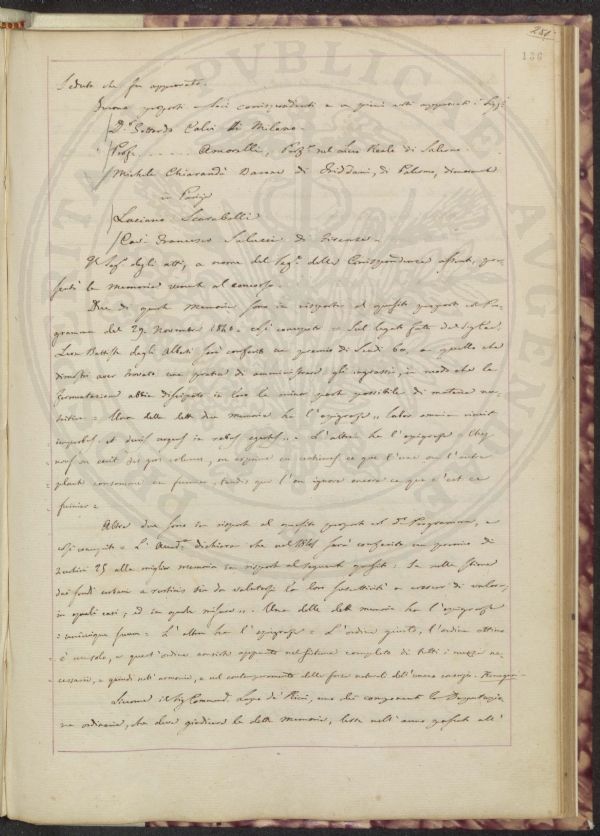 281
136
seduta che fu approvata.
Furono proposti a Soci corrispondenti e a pieni voti approvati i Sigg.i
D.r Gottardo Calvi di Milano.
Prof.e ...... Amorelli, Prof.e nel Liceo Reale di Salerno.
Michele Chiarandà Barone di Friddani, di Palermo, dimorante
in Parigi
Luciano Scarabelli
Cav. Francesco Saluzzi di Firenze.
Il Seg.o degli atti, a nome del Seg.o delle Corrispondenze assente, pre-
sentò le memorie venute al concorso.
Due di queste Memorie sono in risposta al quesito proposto col Pro-
gramma del 29 Novembre 1840 così concepito = Sul legato fatto dal Sig.
Leon Battista degli Alberti sarà conferito un premio di Scudi 60, a quello che
dimostri aver trovato una pratica di amministrare gli ingrassi, in modo che la
fermentazione abbia dissipato in loro la minor parte possibile di materia nu-
tritiva = Una delle dette due memorie ha l'epigrafe " labor omnia vincit
improbus et duris urgens in rebus egestas " = L'altra ha l'epigrafe = Chez
nous on écrit des gros volumes, on exprime en centimes ce que l'une ou l'autre
plante consomme en fumier, tandis que l'on ignore encore ce que c'est ce
fumier =
Altre due sono in risposta al quesito proposto col d.o Programma, e
così concepito = L'Accad.a dichiara che nel 1841 sarà conferito un premio di
zecchini 25 alla miglior memoria in risposta al seguente quesito: Se nelle stime
dei fondi urbani e rustici sia da valutarsi la loro suscettività a crescer di valore,
in quali casi, ed in quale misura ". Una delle dette memorie ha l'epigrafe
= unicuique suum = L'altra ha l'epigrafe = L'ordine giusto, l'ordine ottimo
è un solo, e quest'ordine consiste appunto nel sistema completo di tutti i mezzi ne-
cessarii, e quindi nell'armonia, e nel contemperamento delle forze naturali dell'umano consorzio. Romagnosi
Siccome il Sig. Commend. Lapo de' Ricci, uno dei componenti la Deputazio-
ne ordinaria, che deve giudicare le dette memorie, lesse nell'anno passato all'